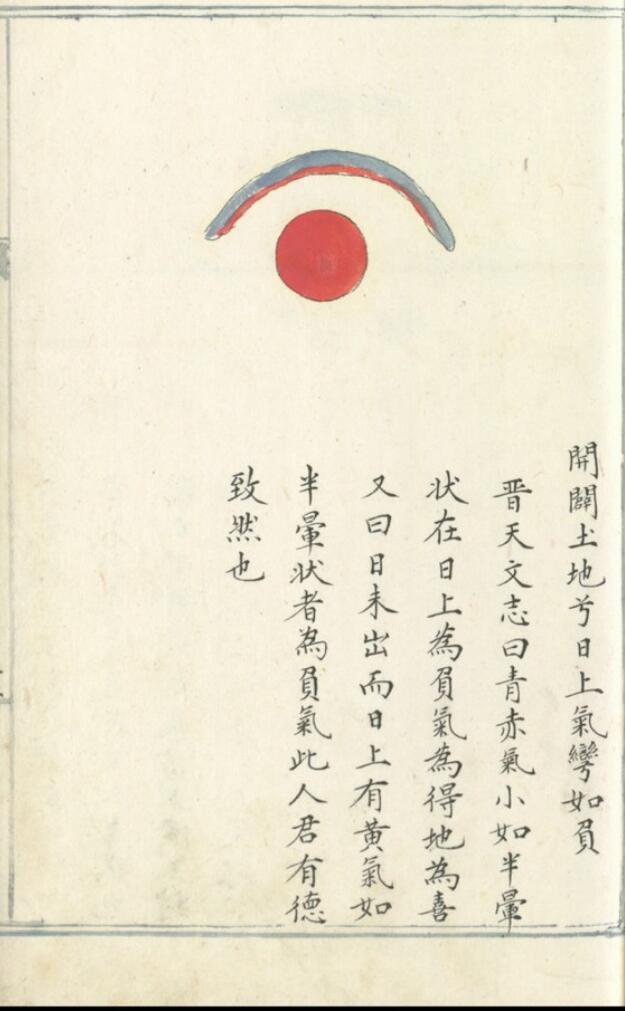 開闢土地兮日上氣彎如負
晋天文志曰青赤氣小如半暈
状在日上為負氣為得地為喜
又曰日未出而日上有黃氣如
半暈状者為負氣此人君有德
致然也